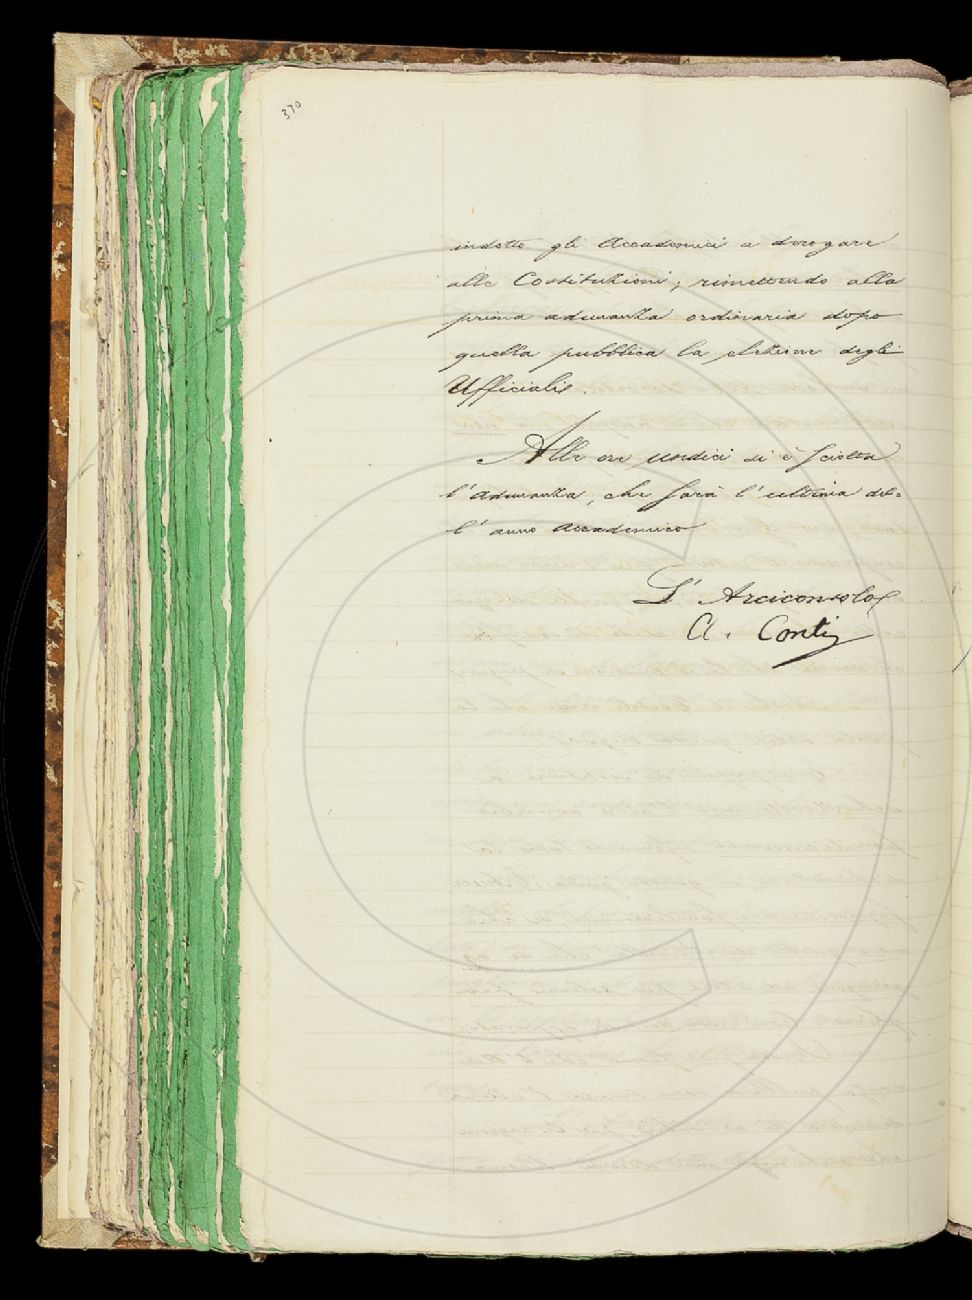 370
indotto gli Accademici a derogare
alle Costituzioni; rimettendo alla
prima adunanza ordinaria dopo
quella pubblica la elezione degli
Ufficiali.
Alle ore undici si è sciolta
l'adunanza, che sarà l'ultima del=
l'anno accademico
L'Arciconsolo
A. Conti